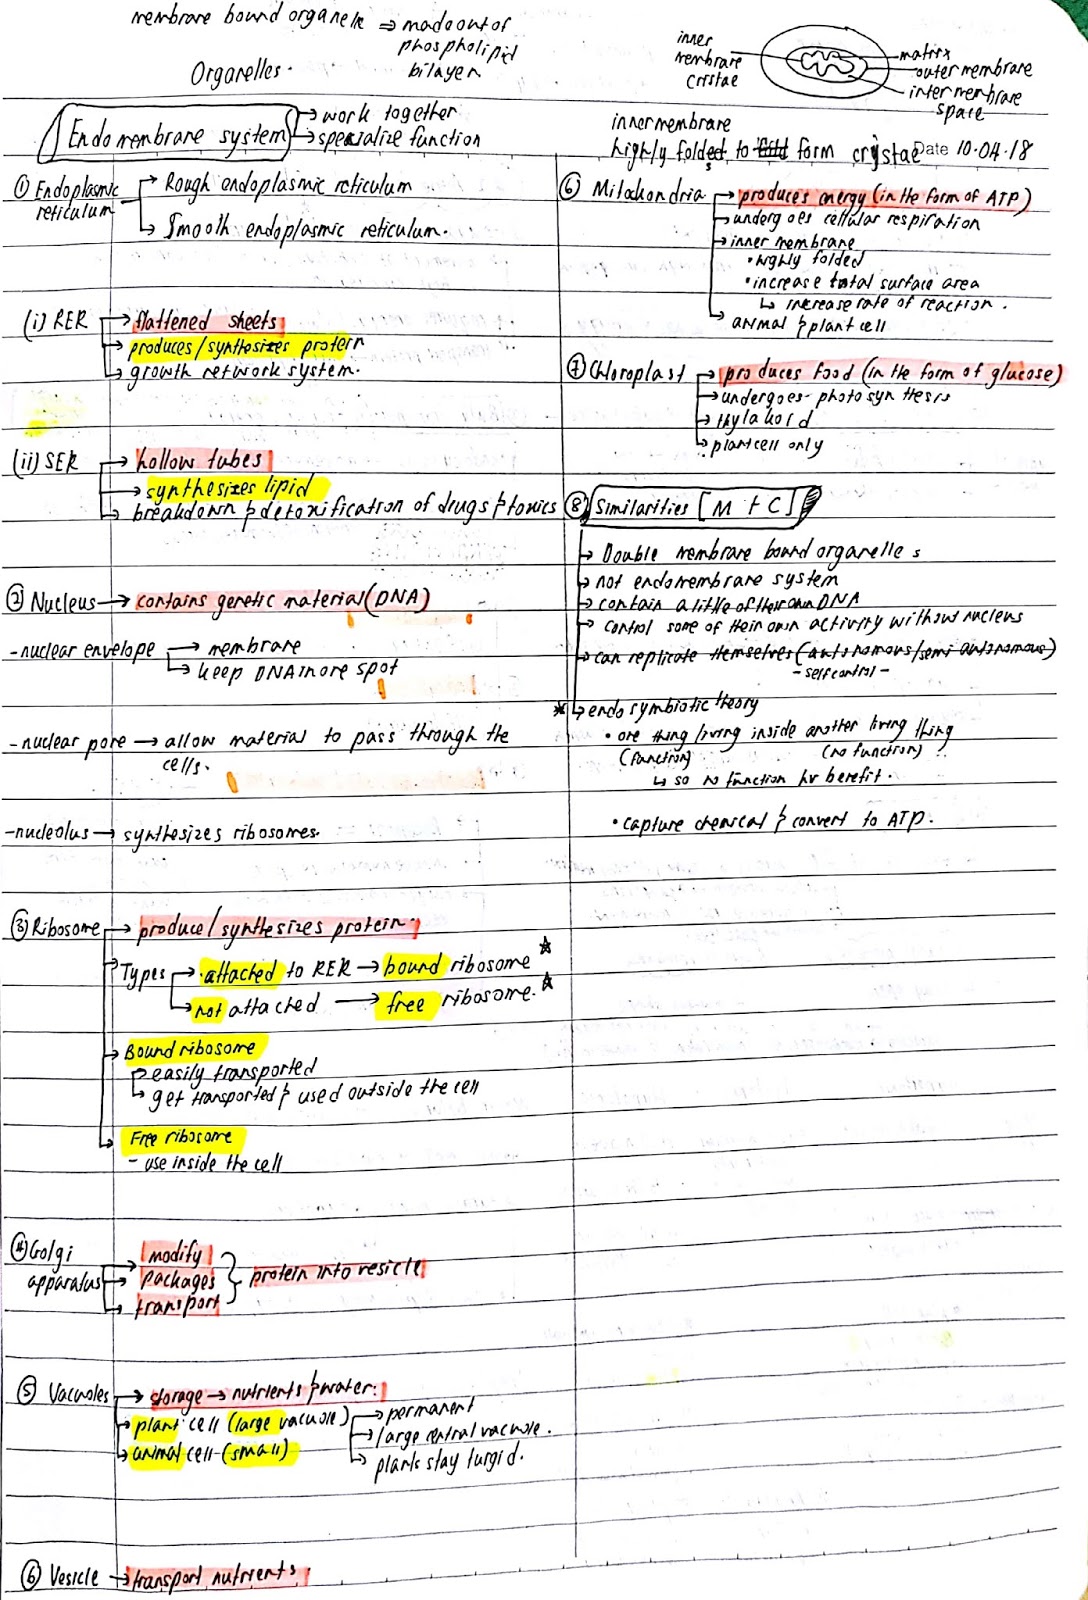 membrane bound organelle ⇒ made out of
phospholipid
bilayer
Organelles.
Endomembrane system → work together
→ specialize function
① Endoplasmic reticulum → Rough endoplasmic reticulum
→ Smooth endoplasmic reticulum.
(i) RER → flattened sheets
→ produces/synthesizes protein
→ growth network system.
(ii) SER → hollow tubes
→ synthesizes lipid
→ breakdown & detoxification of drugs & toxics
② Nucleus → contains genetic material (DNA)
- nuclear envelope → membrane
→ keep DNA in one spot
- nuclear pore → allow material to pass through the
cells.
- nucleolus → synthesizes ribosomes.
③ Ribosome → produce/synthesizes protein.
Types → attached to RER → bound ribosome ☆
→ not attached → free ribosome. ☆
→ Bound ribosome
→ easily transported
→ get transported & used outside the cell
→ Free ribosome
- use inside the cell
④ Golgi
apparatus → modify
→ packages } protein into vesicle
→ transport
⑤ Vacuoles → storage → nutrients & water.
→ plant cell (large vacuole) → permanent
→ large central vacuole.
→ plants stay turgid.
→ animal cell (small)
⑥ Vesicle → transport nutrients
inner
membrane
cristae
matrix
outer membrane
intermembrane
space
inner membrane
highly folds to form cristae
Date 10.04.18
⑥ Mitochondria → produces energy (in the form of ATP)
→ undergoes cellular respiration
→ inner membrane
• highly folded
• increase total surface area
↳ increase rate of reaction.
→ animal & plant cell
⑦ Chloroplast → produces food (in the form of glucose)
→ undergoes photosynthesis
→ thylakoid
→ plant cell only
⑧ Similarities [M + C]
→ Double membrane bound organelles
→ not endomembrane system
→ contain a little of their own DNA
→ control some of their own activity without nucleus
→ can replicate themselves (autonomous/semi autonomous)
- self control -
* ↳ endosymbiotic theory
• one thing living inside another living thing
(function) (no function)
↳ so no function hv benefit.
• capture chemical & convert to ATP.